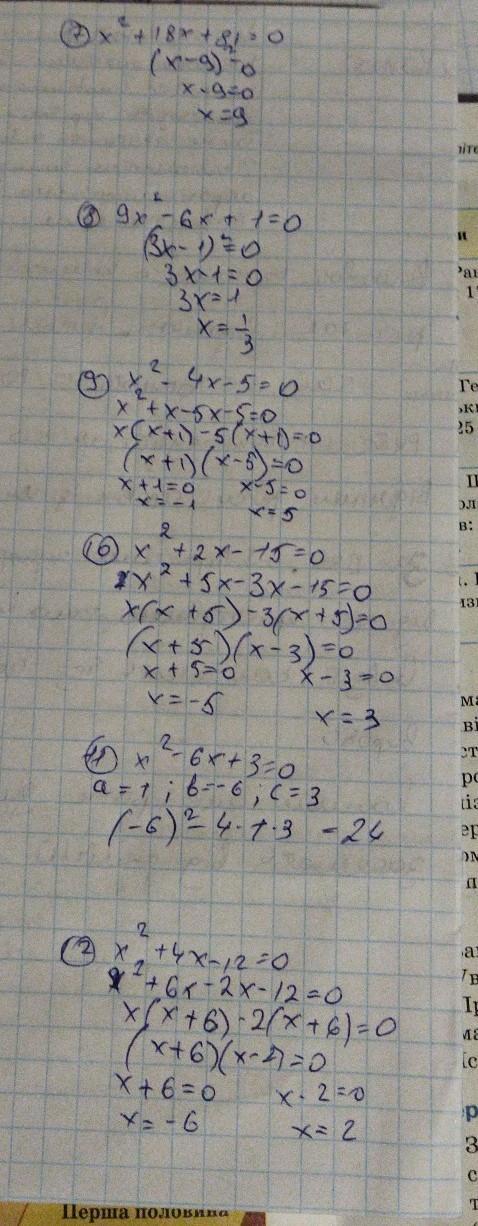 7 x² + 18x + 81 = 0
(x - 9)² = 0
x - 9 = 0
x = 9
8 9x² - 6x + 1 = 0
(3x - 1)² = 0
3x - 1 = 0
3x = 1
x = 1/3
9 x² - 4x - 5 = 0
x² + x - 5x - 5 = 0
x(x + 1) - 5(x + 1) = 0
(x + 1)(x - 5) = 0
x + 1 = 0 x - 5 = 0
x = -1 x = 5
10 x² + 2x - 15 = 0
x² + 5x - 3x - 15 = 0
x(x + 5) - 3(x + 5) = 0
(x + 5)(x - 3) = 0
x + 5 = 0 x - 3 = 0
x = -5 x = 3
11 x² - 6x + 3 = 0
a = 1; b = -6; c = 3
(-6)² - 4·1·3 = 24
12 x² + 4x - 12 = 0
x² + 6x - 2x - 12 = 0
x(x + 6) - 2(x + 6) = 0
(x + 6)(x - 2) = 0
x + 6 = 0 x - 2 = 0
x = -6 x = 2
Перша половина